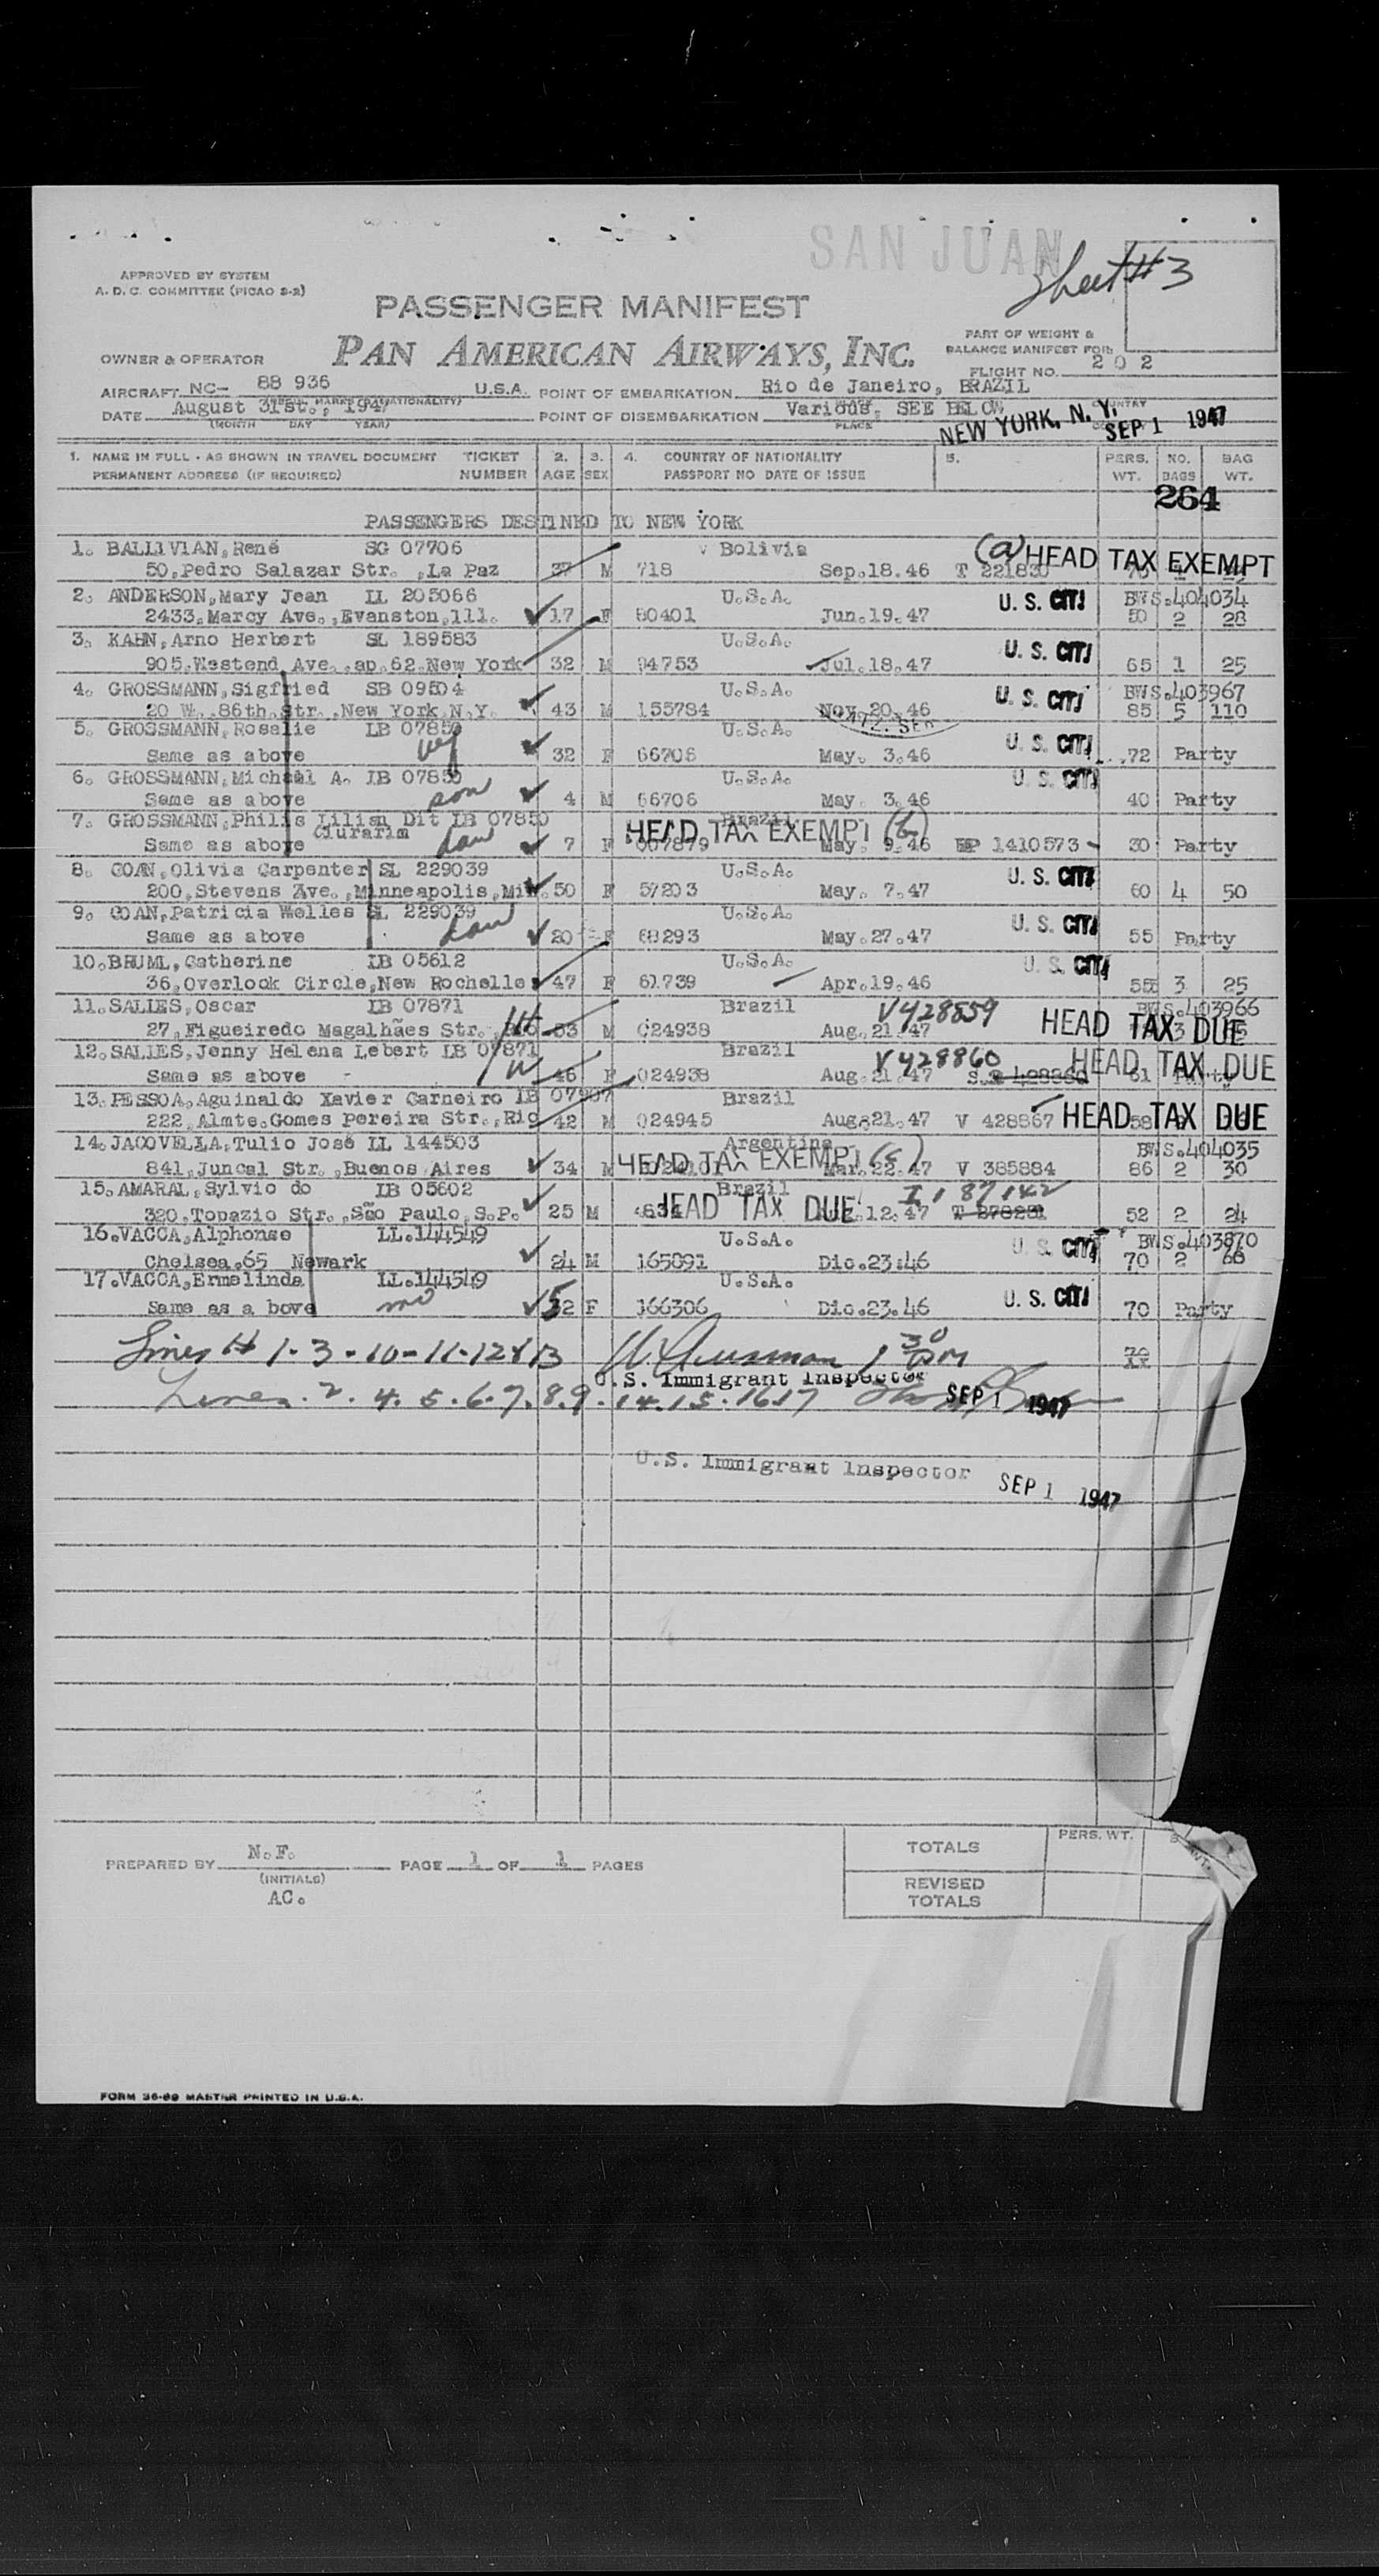 SAN JUAN
Sheet #3
APPROVED BY SYSTEM
A. D. C. COMMITTEE (PICAO S-2)
PASSENGER MANIFEST
PART OF WEIGHT &
BALANCE MANIFEST FOR:
OWNER & OPERATOR PAN AMERICAN AIRWAYS, INC.
FLIGHT NO. 2 0 2
AIRCRAFT NC- 88 936 U.S.A. POINT OF EMBARKATION Rio de Janeiro, BRAZIL
DATE August 31st., 1947 POINT OF DISEMBARKATION Various, SEE BELOW COUNTRY
(MONTH DAY YEAR) PLACE
NEW YORK, N. Y. SEP 1 1947
1. NAME IN FULL - AS SHOWN IN TRAVEL DOCUMENT TICKET 2. 3. 4. COUNTRY OF NATIONALITY 5. PERS. NO. BAG
PERMANENT ADDRESS (IF REQUIRED) NUMBER AGE SEX PASSPORT NO DATE OF ISSUE WT. BAGS WT.
264
PASSENGERS DESTINED TO NEW YORK
1. BALLIVIAN, René SG 07706 v Bolivia (a) HEAD TAX EXEMPT
50, Pedro Salazar Str. , La Paz 37 M 718 Sep.18.46 T 221830
2. ANDERSON, Mary Jean IL 205066 U.S.A. U. S. CIT BWS.404034
2433, Marcy Ave., Evanston, Ill. 17 F 80401 Jun.19.47 50 2 28
3. KAHN, Arno Herbert SL 189583 U.S.A. U. S. CIT
905, Westend Ave., ap.62. New York 32 M 94753 Jul.18.47 65 1 25
4. GROSSMANN, Sigfried SB 09504 U.S.A. U. S. CIT BWS.403967
20 W. 86th. Str., New York, N.Y. 43 M 155784 Nov.20.46 85 5 110
5. GROSSMANN, Rosalie IB 07850 U.S.A. U. S. CIT
Same as above 32 F 66706 May. 3.46 72 Party
6. GROSSMANN, Michael A. IB 07850 U.S.A. U. S. CIT
Same as above son 4 M 66706 May. 3.46 40 Party
7. GROSSMANN, Philis Lilian Dit IB 07850 Brazil
HEAD TAX EXEMPT (b)
Same as above dau 7 F 007879 May. 9.46 1410573 30 Party
8. COAN, Olivia Carpenter SL 229039 U.S.A. U. S. CIT
200, Stevens Ave., Minneapolis, Min. 50 F 57203 May. 7.47 60 4 50
9. COAN, Patricia Welles SL 229039 U.S.A. U. S. CIT
Same as above dau 20 F 68293 May.27.47 55 Party
10. BRUML, Catherine IB 05612 U.S.A. U. S. CIT
36, Overlook Circle, New Rochelle 47 F 61739 Apr.19.46 55 3 25
11. SALLES, Oscar IB 07871 Brazil V428859 BWS.403966
27, Figueiredo Magalhães Str., 53 M 024938 Aug.21.47 HEAD TAX DUE
12. SALLES, Jenny Helena Lebert IB 07871 Brazil V428860 HEAD TAX DUE
Same as above W 46 F 024938 Aug.21.47 61 Party
13. PESSOA, Aguinaldo Xavier Carneiro IB 07907 Brazil
222, Almte. Gomes Pereira Str., Rio 42 M 024945 Aug.21.47 V 428867 HEAD TAX DUE
14. JACOVELLA, Tulio José IL 144503 Argentine BWS.404035
HEAD TAX EXEMPT (c)
841, Juncal Str., Buenos Aires 34 M Mar.22.47 V 385884 86 2 30
15. AMARAL, Sylvio do IB 05602 Brazil I 187142
320, Topazio Str., São Paulo, S.P. 25 M HEAD TAX DUE 12.47 52 2 24
16. VACCA, Alphonse LL.144549 U.S.A. U. S. CIT BWS.403870
Chelsea, 65 Newark 24 M 165891 Dic.23.46 70 2 66
17. VACCA, Ermelinda LL.144549 U.S.A. U. S. CIT
Same as a bove mo 52 F 166306 Dic.23.46 70 Party
Lines # 1-3-10-11-12 & 13 1 30 PM
U.S. Immigrant Inspector
Lines. 2. 4. 5. 6. 7. 8. 9. 14. 15. 16. 17 SEP 1 1947
U.S. Immigrant Inspector SEP 1 1947
PREPARED BY N.F. PAGE 1 OF 1 PAGES
(INITIALS)
AC.
TOTALS PERS. WT.
REVISED
TOTALS
FORM 36-89 MASTER PRINTED IN U.S.A.